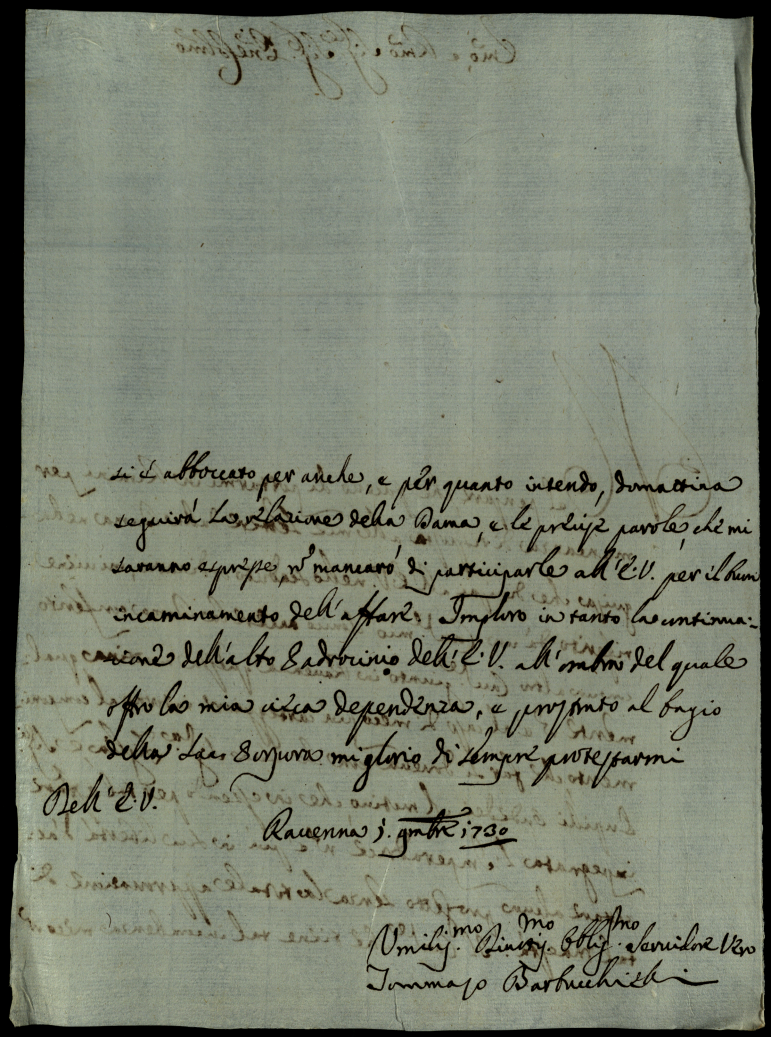 si è abboccato per anche, e per quanto intendo, domattina
seguirà la relazione della Dama, e le precise parole, che mi
saranno espresse, nõ mancarò di participarle all'E.V. per il buon
incaminamento dell'affare. Imploro in tanto la continua-
zione dell'alto Padrocinio dell'E.V. all'ombra del quale
offro la mia cieca dependenza, e prostrato al bagio
della Sacra Porpora mi glorio di sempre protestarmi
Dell'E.V.
Ravenna 1. 9mbre 1730
Umiliss.mo Divotiss.mo Obblig.mo Servidore Vero
Tommaso Barbucchielli